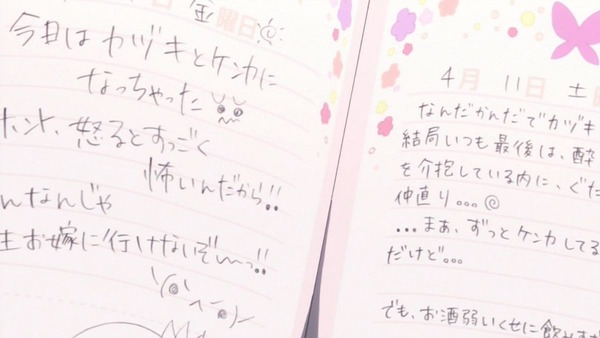 金曜日
今日はカヅキとケンカに
なっちゃった
ホント、怒るとすっごく
怖いんだから!!
んなんじゃ
お嫁に行けないぞ〜っ!!
4月 11日 土
なんだかんだでカヅキ
結局いつも最後は、酔
を介抱している内に、ぐだ
仲直り...
...まぁ、ずっとケンカしてる
だけど...
でも、お酒弱いくせに飲み